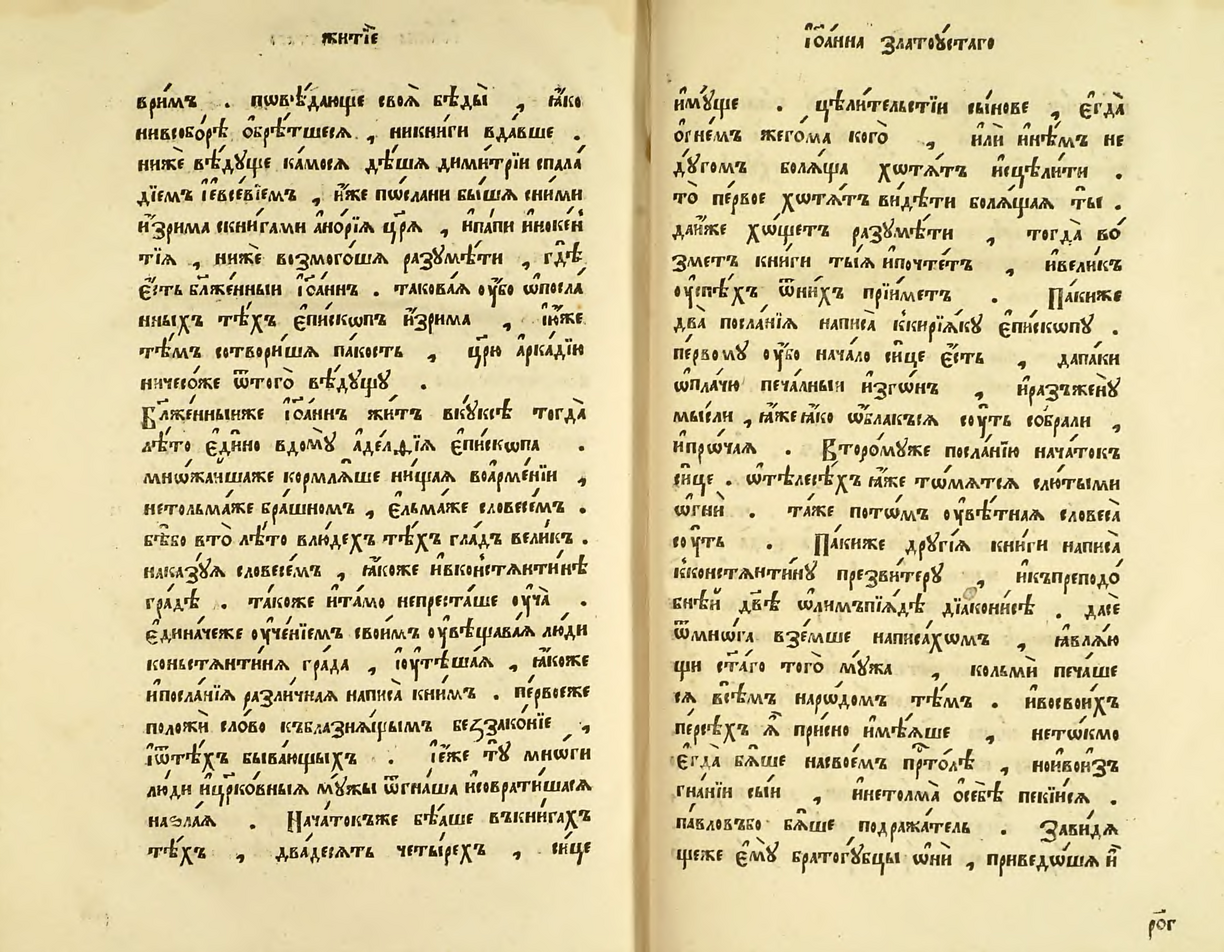 житїе
врим̾ъ . пѡвѣ́дающе своѧ̀ бѣды̀ , ꙗ҆́ко
нивсобо́рѣ ѻ҆брѣ́тшесѧ , никни́ги вда́вше .
нижѐ вѣ́дꙋще ка́мосѧ дѣ́шѧ дими́трїи спала́
дїемъ ї҆евсе́вїемъ , и҆́же пѡслани бы́шѧ сни́ми
и҆́зрима скни́гами а҆но́рїѧ цр҃ѧ̀ , и҆па́пи и҆ноке́н
тїѧ , нижѐ возмого́шѧ разꙋмѣ́ти , гдѣ̀
є҆́сть бл҃же́нныи ї҆ѡа́ннъ . такова́ѧ ᲂу҆́бо ѿпосла
нныхъ тѣ́хъ є҆пи́скѡпъ и҆́зрима , і҆и҆́же
тѣ́мъ сотвори́шѧ па́кость , цр҃ю̀ а҆рка́дїю
ничесо́же ѿтого̀ вѣ́дꙋщꙋ .
Бл҃же́нныиже ї҆ѡа́ннъ жи́тъ вкꙋ́ксѣ тогда̀
лѣ́то є҆ди́но вдомꙋ̀ а҆де́лѳїѧ є҆пи́скѡпа .
мнѡжа́ишаже кормлѧ́ше ни́щаѧ воарме́нїи ,
нетольма́же бра́шномъ , є҆льма́же словесе́мъ .
бѣ́бо вто̀ лѣ́то влю́дехъ тѣ́хъ гла́дъ вели́къ .
наказꙋ́ѧ словесе́мъ , ꙗ҆́коже и҆вконстѧнти́нѣ
гра́дѣ . та́коже и҆та́мо непреста́ше ᲂу҆ча̀ .
є҆дина́чеже ᲂу҆че́нїемъ свои́мъ ᲂу҆вѣщава́ѧ лю́ди
коньстѧнти́нѧ гра́да , ї҆ᲂу҆тѣша́ѧ , ꙗ҆́коже
и҆посла́нїѧ разли́чнаѧ написа̀ кни́мъ . пе́рвоеже
положѝ сло́во къблазнѧ́щымъ беззако́нїе ,
ї҆ѿтѣ́хъ быва́ющыхъ . ї҆е́же тꙋ̀ мнѡ́ги
лю́ди и҆цр҃ко́вныѧ мꙋ́жы ѿгна́ша и҆соврати́шасѧ
на́злаѧ . Нача́токъже бѣ́аше въкни́гахъ
тѣ́хъ , два́десѧть четы́рехъ , си́це
ї҆ѡа́нна златоꙋ́стаго
и҆мꙋ́ще . цѣли́тельстїи сы́нове , є҆гда̀
ѻ҆гне́мъ жего́ма кого̀ , и҆лѝ и҆нѣ́мъ не
дꙋ́гомъ болѧ́ща хѡтѧ́тъ и҆сцѣли́ти .
то̀ пе́рвое хѡтѧ́тъ ви́дѣти болѧ́щаѧ ты̀ .
да́иже хѡ́щетъ разꙋмѣ́ти , тогда̀ во́
зметъ кни́ги ты́ѧ и҆почте́тъ , и҆вели́къ
ᲂу҆спѣ́хъ ѿни́хъ прїи́метъ . Па́киже
два̀ посла́нїѧ написа̀ ккирїѧ́кꙋ є҆пи́скѡпꙋ .
пе́рвомꙋ ᲂу҆́бо нача́ло си́це є҆́сть , дапа́ки
ѡ҆пла́чю печа́лныи и҆згѡ́нъ , и҆разъженꙋ̀
мы́сли , ꙗ҆́жеꙗко ѡ҆́блакъсѧ соу́ть собра́ли ,
и҆прѡ́чаѧ . Второ́мꙋже посла́нїю нача́токъ
си́це . ѡ҆тѣлесѣ́хъ ꙗ҆́же тѡмѧ́тсѧ слю́тыми
ѡ҆гнѝ . та́же пото́мъ ᲂу҆вѣ́тнаѧ словеса̀
соу́ть . Па́киже дрꙋгі́ѧ кни́ги написа̀
кконстѧнти́нꙋ презви́терꙋ , и҆къпреподо́
бнѣ́и двѣ̀ ѡ҆лимъпїѧ́дѣ дїа́конисѣ . дасѐ
ѿмнѡ́га взе́мше написа́хѡмъ , ꙗ҆влѧ́ю
щи ст҃а́го того̀ мꙋ́жа , кольмѝ печа́ше
сѧ всѣ́мъ нарѡ́домъ тѣ́мъ . и҆восвои́хъ
пе́рсѣхъ ѧ҆̀ при́сно и҆мѣ́ѧше , нетѡ́кмо
є҆гда̀ бѧ́ше насвое́мъ пр҃то́лѣ , но́ивоизъ
гна́нїи сы́и , и҆нетолма̀ ѻ҆себѣ̀ пекі́исѧ .
па́вловъбо бѧ́ше подража́тель . Зави́дѧ
щеже є҆мꙋ̀ братогꙋ́бцы ѡ҆нѝ , приведѡ́шѧ и҆̀
рог